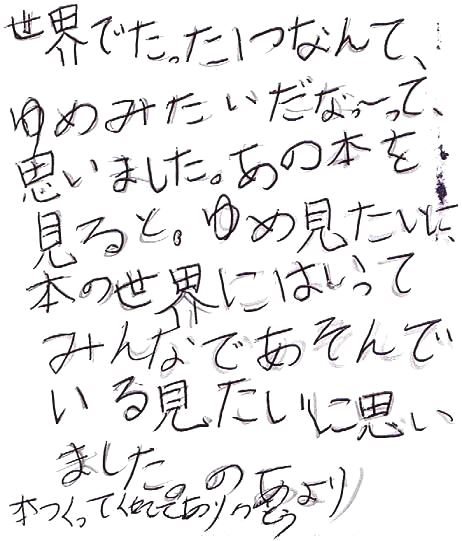 世界でたった1つなんて、
ゆめみたいだな〜って、
思いました。あの本を
見ると。ゆめ見たいに、
本の世界にはいって
みんなであそんで
いる見たいに思い
ました。
本つくってくれてあり より